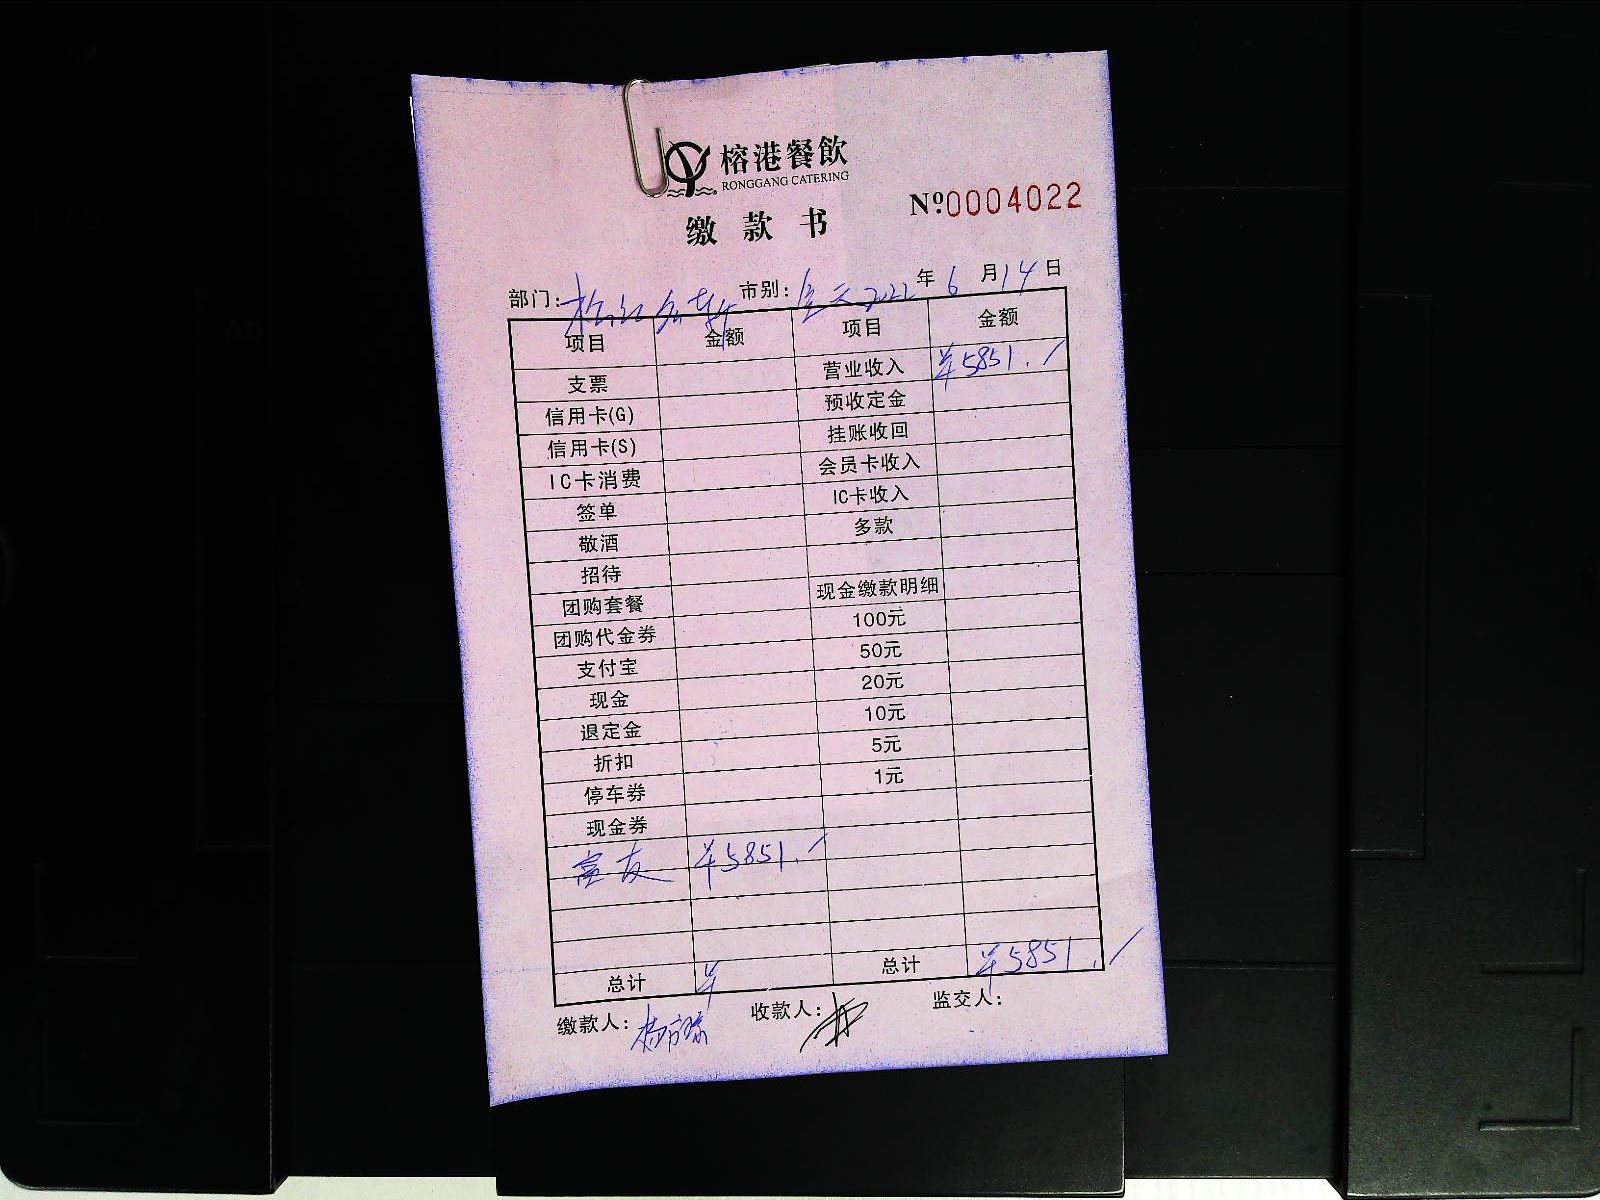 榕港餐飲
RONGGANG CATERING
Nº0004022
缴款书
部门: 市别: 全天 2022年6月14日
项目 金额 项目 金额
支票 营业收入 ¥5851.-
信用卡(G) 预收定金
信用卡(S) 挂账收回
IC卡消费 会员卡收入
签单 IC卡收入
敬酒 多款
招待
团购套餐 现金缴款明细
团购代金券 100元
支付宝 50元
现金 20元
退定金 10元
折扣 5元
停车券 1元
现金券
富友 ¥5851.-
总计 ¥ 总计 ¥5851.-
缴款人: 收款人: 监交人: